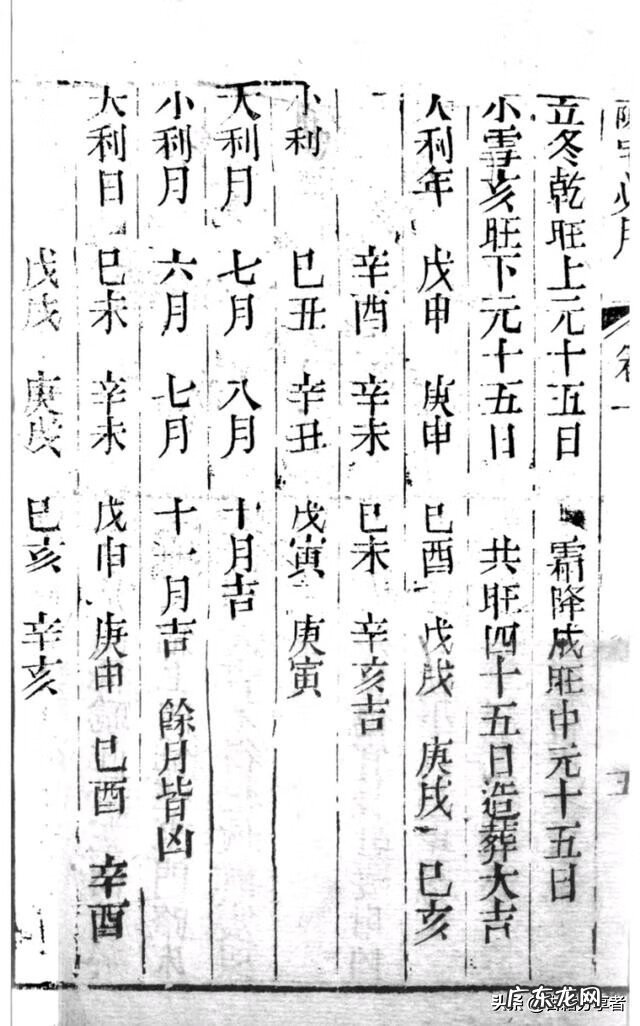 卷一
立冬乾旺上元十五日 霜降戌旺中元十五日
小雪亥旺下元十五日 共旺四十五日造葬大吉
大利年 戊申 庚申 巳酉 戊戌 庚戌 巳亥
辛酉 辛未 巳未 辛亥吉
小利 巳丑 辛丑 戊寅 庚寅
大利月 七月 八月 十月吉
小利月 六月 七月 十一月吉 餘月皆凶
大利日 巳未 辛未 戊申 庚申 巳酉 辛酉
戊戌 庚戌 巳亥 辛亥
广东龙网